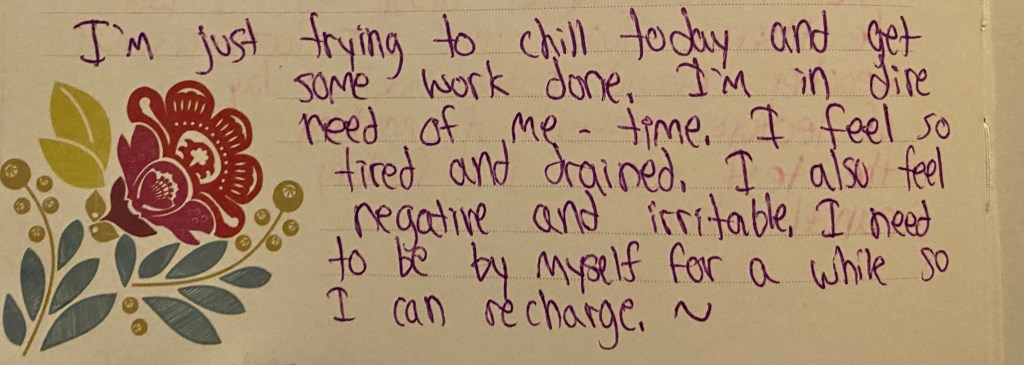 I'm just trying to chill today and get
some work done. I'm in dire
need of me-time. I feel so
tired and drained. I also feel
negative and irritable. I need
to be by myself for a while so
I can recharge. ~